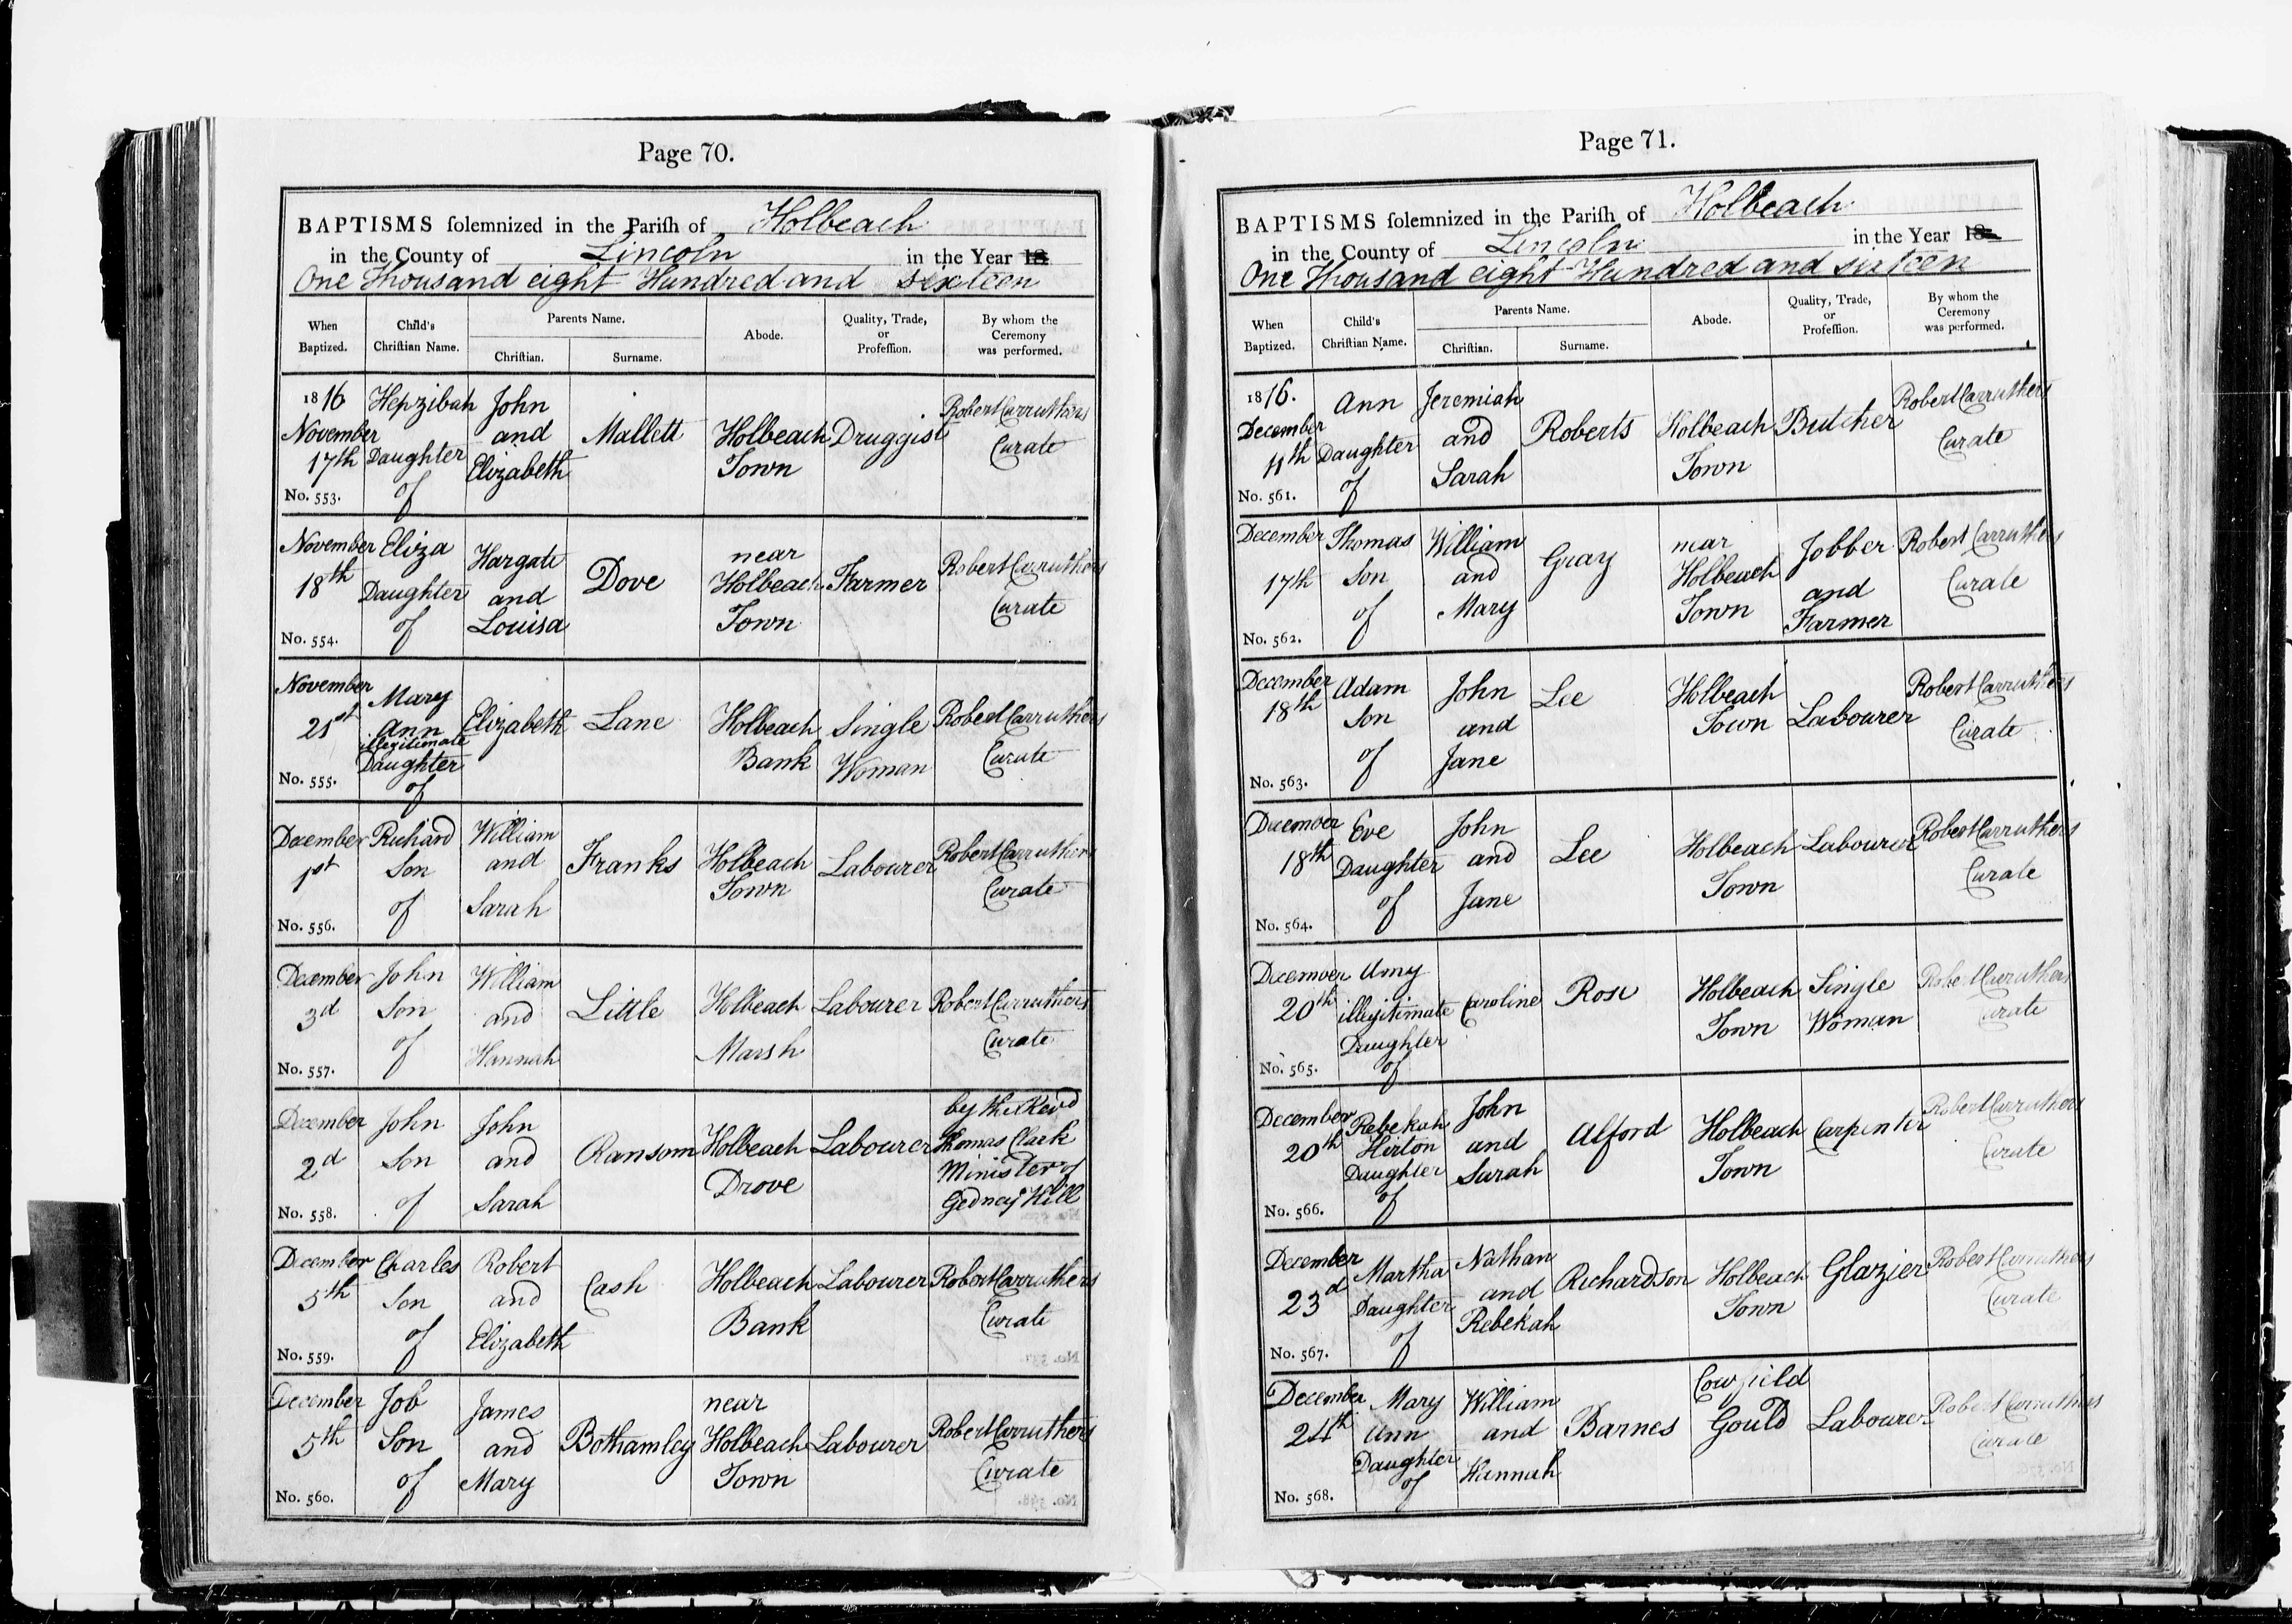 Page 70.
BAPTISMS solemnized in the Parish of Holbeach
in the County of Lincoln in the Year 18
One Thousand eight Hundred and sixteen
When Baptized. Child's Christian Name. Parents Name. Christian. Surname. Abode. Quality, Trade, or Profession. By whom the Ceremony was performed.
1816 November 17th No. 553. Hepzibah Daughter of John and Elizabeth Mallett Holbeach Town Druggist Robert Carruthers Curate
November 18th No. 554. Eliza Daughter of Hargate and Louisa Dove near Holbeach Town Farmer Robert Carruthers Curate
November 21st No. 555. Mary Ann illegitimate Daughter of Elizabeth Lane Holbeach Bank Single Woman Robert Carruthers Curate
December 1st No. 556. Richard Son of William and Sarah Franks Holbeach Town Labourer Robert Carruthers Curate
December 3d No. 557. John Son of William and Hannah Little Holbeach Marsh Labourer Robert Carruthers Curate
December 2d No. 558. John Son of John and Sarah Ransom Holbeach Drove Labourer by the Revd Thomas Clark Minister of Gedney Hill
December 5th No. 559. Charles Son of Robert and Elizabeth Cash Holbeach Bank Labourer Robert Carruthers Curate
December 5th No. 560. Job Son of James and Mary Bothamley near Holbeach Town Labourer Robert Carruthers Curate
Page 71.
BAPTISMS solemnized in the Parish of Holbeach
in the County of Lincoln in the Year 18
One Thousand eight Hundred and sixteen
When Baptized. Child's Christian Name. Parents Name. Christian. Surname. Abode. Quality, Trade, or Profession. By whom the Ceremony was performed.
1816. December 11th No. 561. Ann Daughter of Jeremiah and Sarah Roberts Holbeach Town Butcher Robert Carruthers Curate
December 17th No. 562. Thomas Son of William and Mary Gray near Holbeach Town Jobber and Farmer Robert Carruthers Curate
December 18th No. 563. Adam Son of John and Jane Lee Holbeach Town Labourer Robert Carruthers Curate
December 18th No. 564. Eve Daughter of John and Jane Lee Holbeach Town Labourer Robert Carruthers Curate
December 20th No. 565. Amy illegitimate Daughter of Caroline Rose Holbeach Town Single Woman Robert Carruthers Curate
December 20th No. 566. Rebekah Hirton Daughter of John and Sarah Alford Holbeach Town Carpenter Robert Carruthers Curate
December 23d No. 567. Martha Daughter of Nathan and Rebekah Richardson Holbeach Town Glazier Robert Carruthers Curate
December 24th No. 568. Mary Ann Daughter of William and Hannah Barnes Cowfield Gould Labourer Robert Carruthers Curate